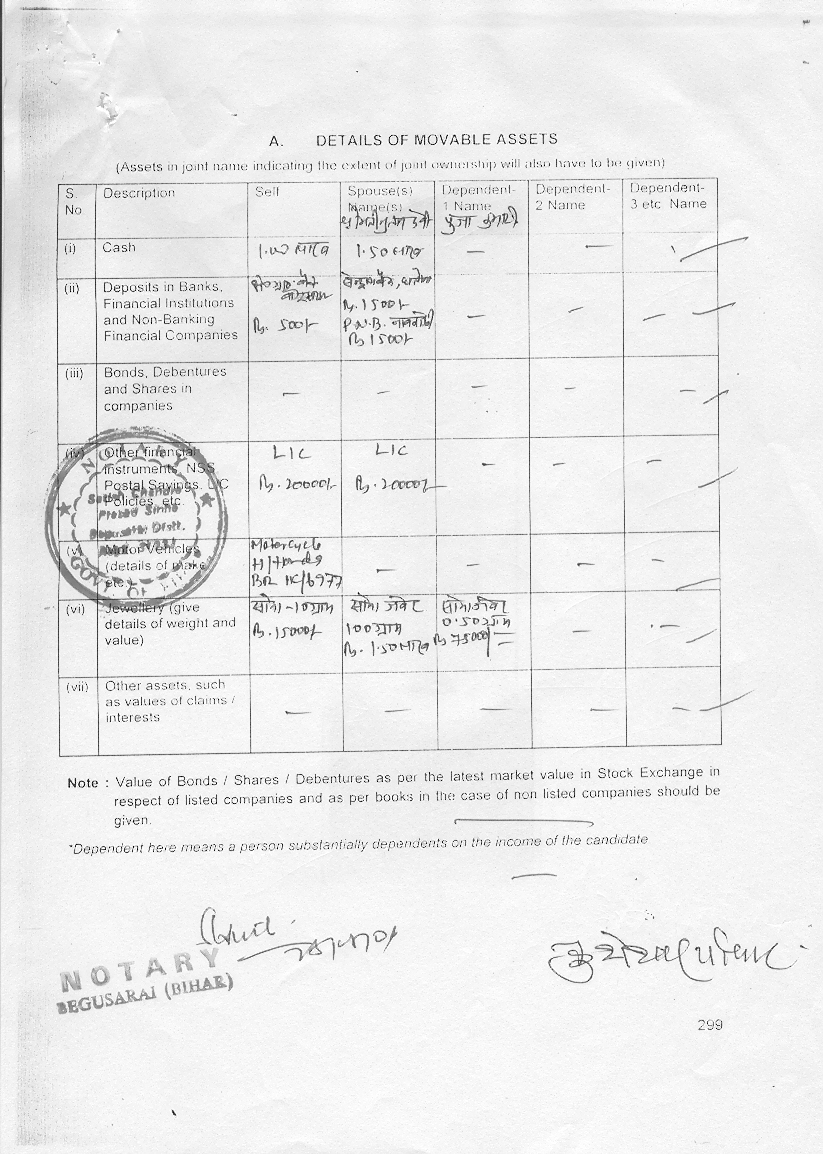 A. DETAILS OF MOVABLE ASSETS
(Assets in joint name indicating the extent of joint ownership will also have to be given)
S. No
Description
Self
Spouse(s) Name(s)
Dependent-1 Name
Dependent-2 Name
Dependent-3 etc Name
देवी
पुजा कुमारी
(i)
Cash
1.00 लाख
1.50 लाख
—
—
(ii)
Deposits in Banks,
Financial Institutions
and Non-Banking
Financial Companies
Rs. 500/-
Rs. 1500/-
P.N.B.
Rs 1500/-
—
—
—
(iii)
Bonds, Debentures
and Shares in
companies
—
—
—
—
—
(iv)
Other financial
instruments, NSS
Postal Savings, LIC
Policies, etc.
LIC
Rs. 200000/-
LIC
Rs. 200000/-
—
—
—
(v)
Motor Vehicles
(details of make,
etc.)
Motorcycle
H/Honda
—
—
—
—
(vi)
Jewellery (give
details of weight and
value)
सोना - 10 ग्राम
Rs. 15000/-
सोना जेवर
100 ग्राम
Rs. 1.50 लाख
सोना जेवर
0.50 ग्राम
Rs 75000/-
—
—
(vii)
Other assets, such
as values of claims /
interests
—
—
—
—
—
NOTARY
Satish Chandra
Prasad Sinha
Begusarai Distt.
GOVT. OF
Note : Value of Bonds / Shares / Debentures as per the latest market value in Stock Exchange in
respect of listed companies and as per books in the case of non listed companies should be
given.
*Dependent here means a person substantially dependents on the income of the candidate
NOTARY
BEGUSARAI (BIHAR)
299